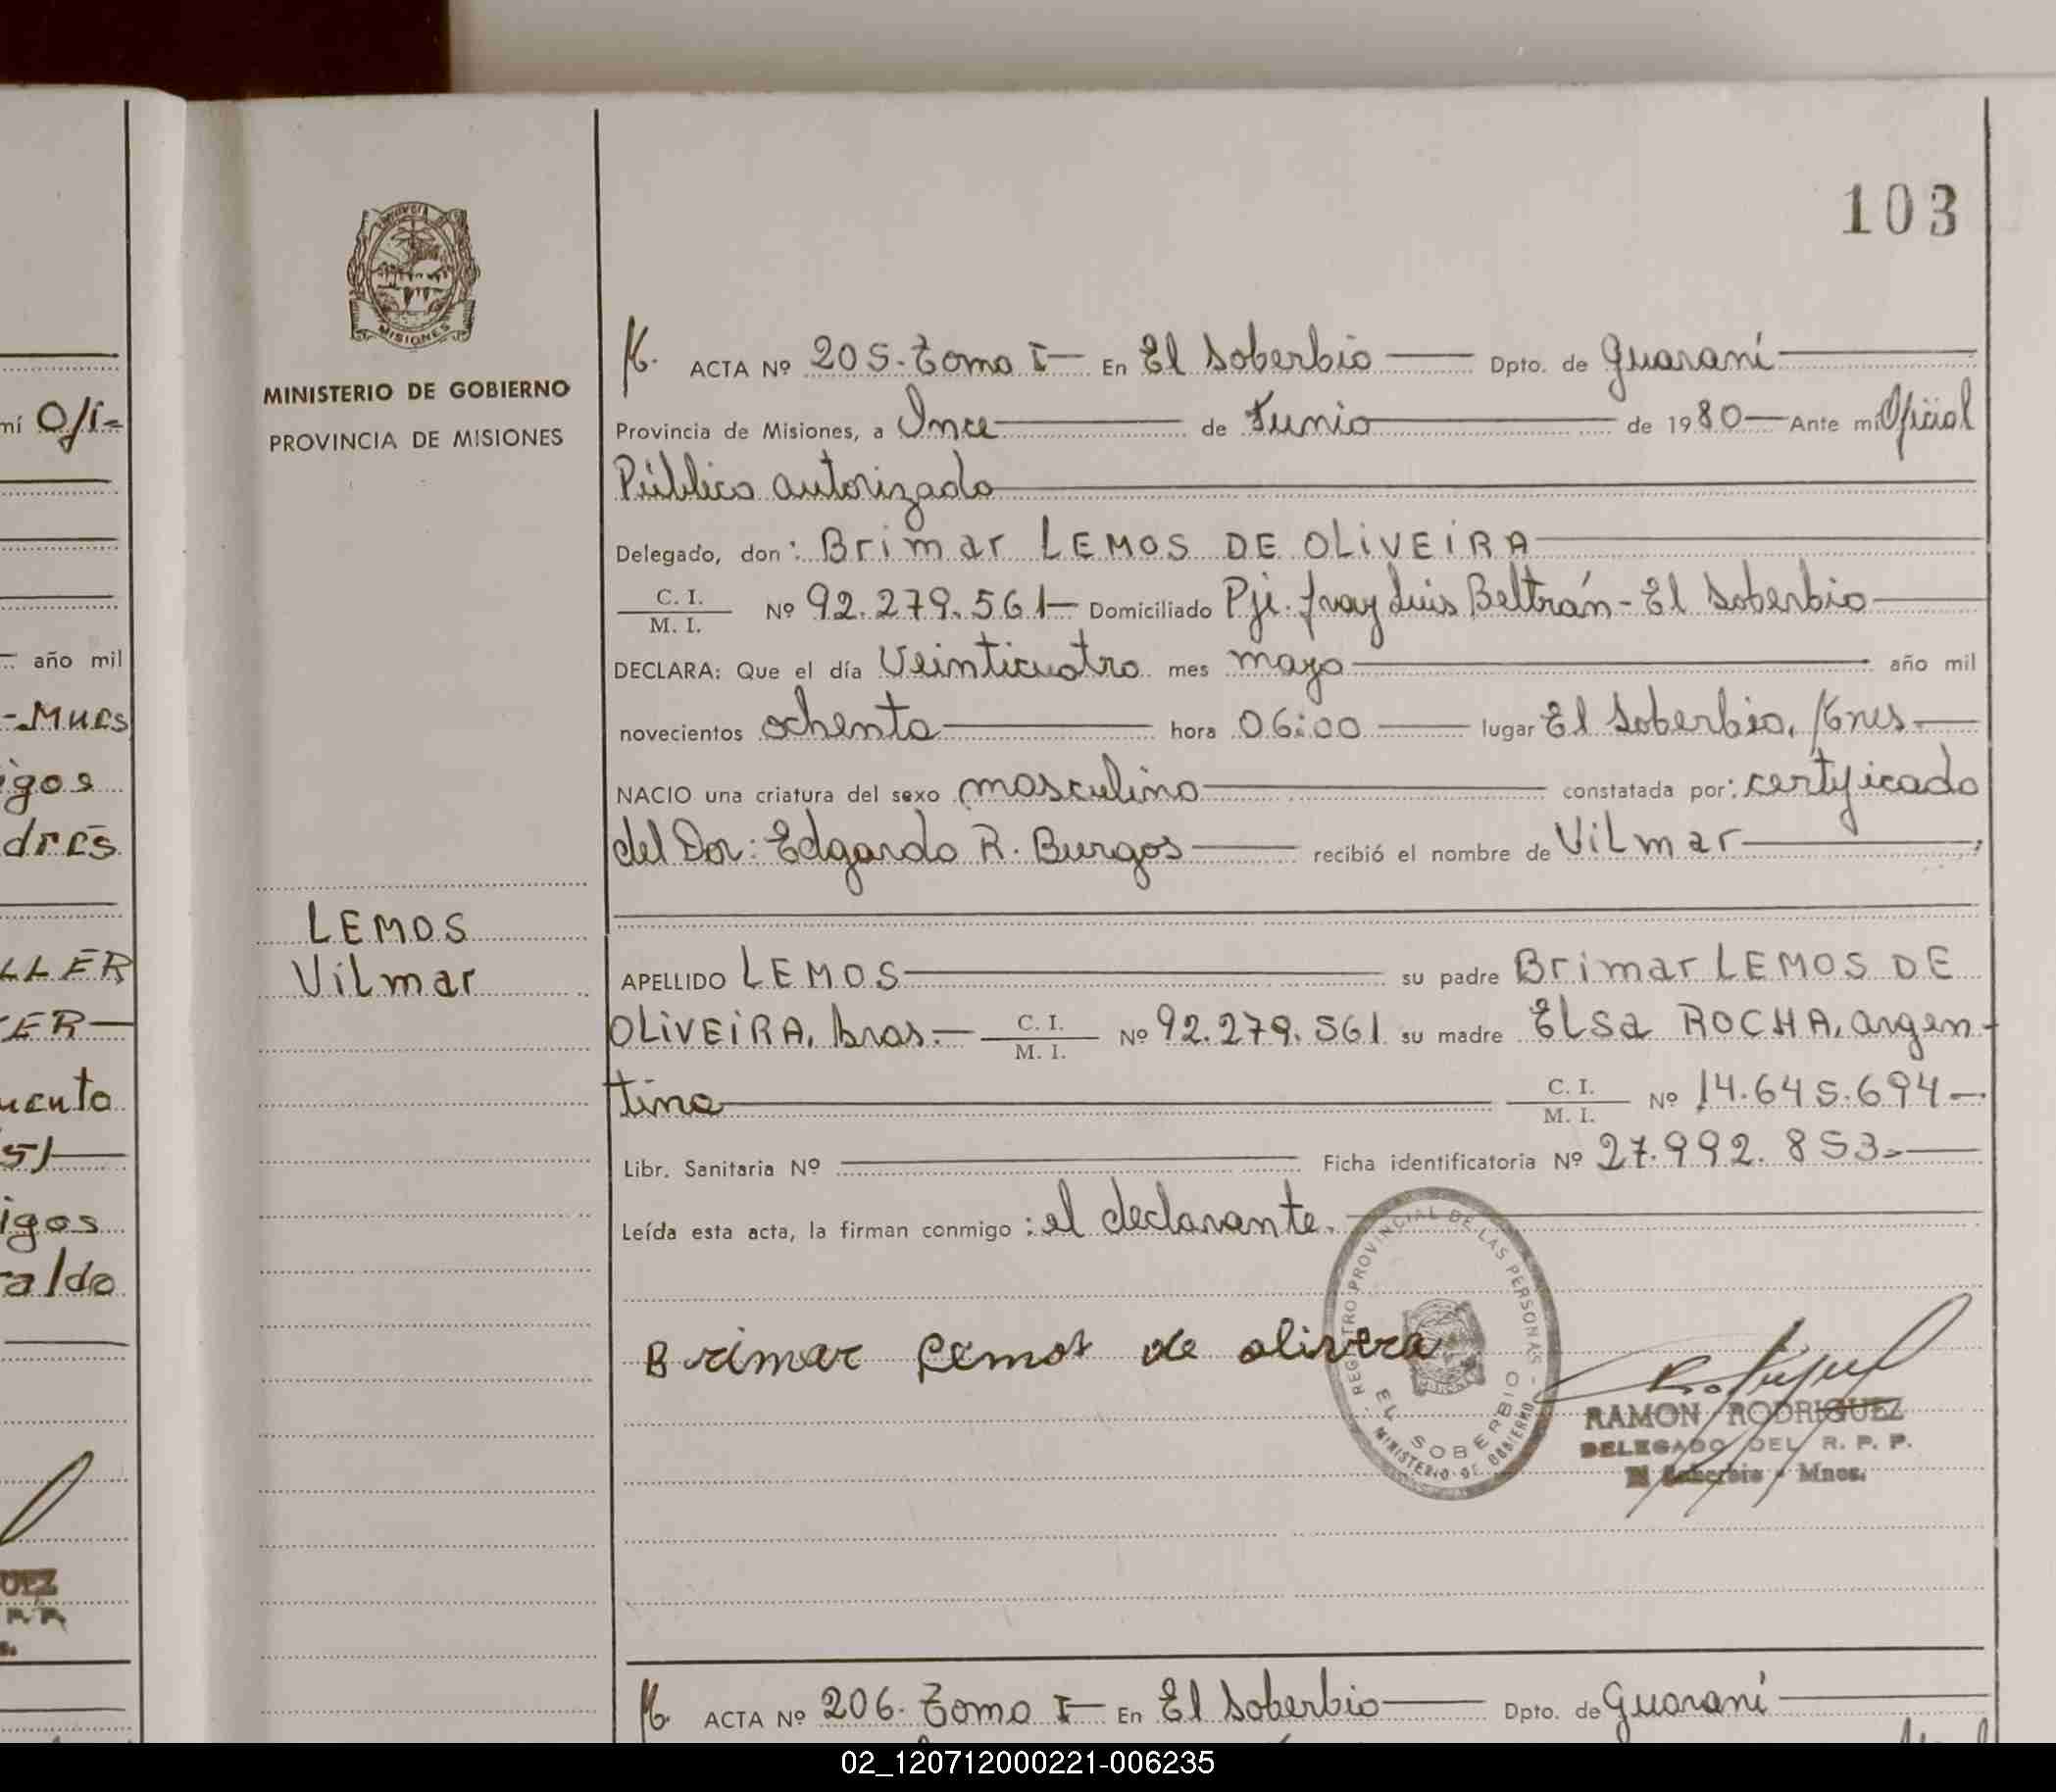 103
MISIONES
MINISTERIO DE GOBIERNO
PROVINCIA DE MISIONES
LEMOS
Vilmar
ACTA Nº 205. Tomo I— En El Soberbio — Dpto. de Guaraní
Provincia de Misiones, a Once de Junio de 1980— Ante mí Oficial
Público autorizado
Delegado, don: Brimar LEMOS DE OLIVEIRA
C. I.
M. I. Nº 92.279.561— Domiciliado Pje. fray Luis Beltrán - El Soberbio
DECLARA: Que el día Veinticuatro mes mayo año mil
novecientos ochenta hora 06:00 lugar El Soberbio, Mnes
NACIO una criatura del sexo masculino constatada por: certificado
del Dor: Edgardo R. Burgos recibió el nombre de Vilmar
APELLIDO LEMOS su padre Brimar LEMOS DE
OLIVEIRA, bras.— C. I.
M. I. Nº 92.279.561 su madre ELSA ROCHA, argen-
tina C. I.
M. I. Nº 14.645.694—
Libr. Sanitaria Nº Ficha identificatoria Nº 27.992.853.-
Leída esta acta, la firman conmigo: el declarante.
Brimar Lemos de olivera
REGISTRO PROVINCIAL DE LAS PERSONAS
EL SOBERBIO
MINISTERIO DE GOBIERNO
RAMON RODRIGUEZ
DELEGADO DEL R. P. P.
El Soberbio - Mnes.
ACTA Nº 206. Tomo I— En El Soberbio — Dpto. de Guaraní
mí Ofi-
año mil
igos
dres
LLER
ER—
mento
51—
igos
aldo
UEZ
02_120712000221-006235